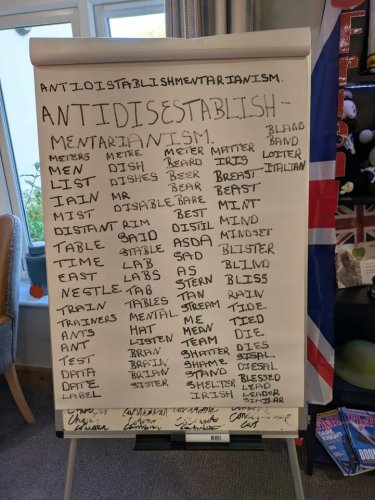 ANTIDISTABLISHMENTARIANISM.
ANTIDISESTABLISH-
MENTARIANISM.
METERS
MEN
LIST
IAIN
MIST
DISTANT
TABLE
TIME
EAST
NESTLE
TRAIN
TRAINERS
ANTS
ANT
TEST
DATA
DATE
LABEL
METRE
DISH
DISHES
MR
DISABLE
RIM
SAID
STABLE
LAB
LABS
TAB
TABLES
MENTAL
HAT
LISTEN
BRAN
BRAIN
BRIAN
SISTER
METER
BEARD
BEER
BEAR
BARE
BEST
DISTIL
ASDA
SAD
AS
STERN
TAN
STREAM
ME
MEAN
TEAM
SHATTER
SHAME
STAND
SHELTER
IRISH
MATTER
IRIS
BREAST
BEAST
MINT
MIND
MINDSET
BLISTER
BLIND
BLISS
RAIN
TIDE
TIED
DIE
DIES
SISAL
DIESAL
BLESSED
LEAD
LEADER
SIMILAR
BLAND
BAND
LOITER
ITALIAN